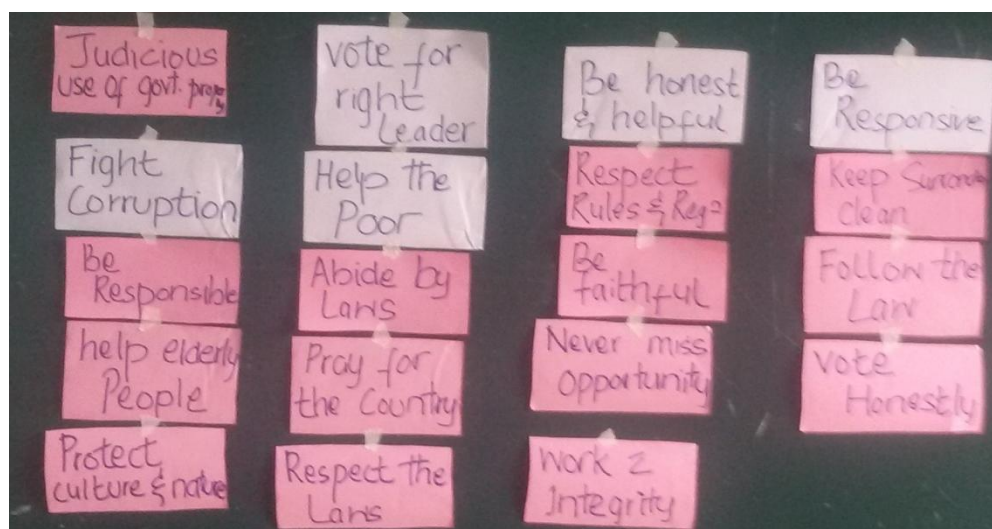 Judicious
use of govt. prop
Fight
Corruption
Be
Responsible
help elderly
People
Protect
culture & nature
vote for
right
Leader
Help the
Poor
Abide by
Laws
Pray for
the Country
Respect the
Laws
Be honest
& helpful
Respect
Rules & Reg
Be
faithful
Never miss
opportunity
Work 2
Integrity
Be
Responsive
Keep
clean
Follow the
Law
Vote
Honestly